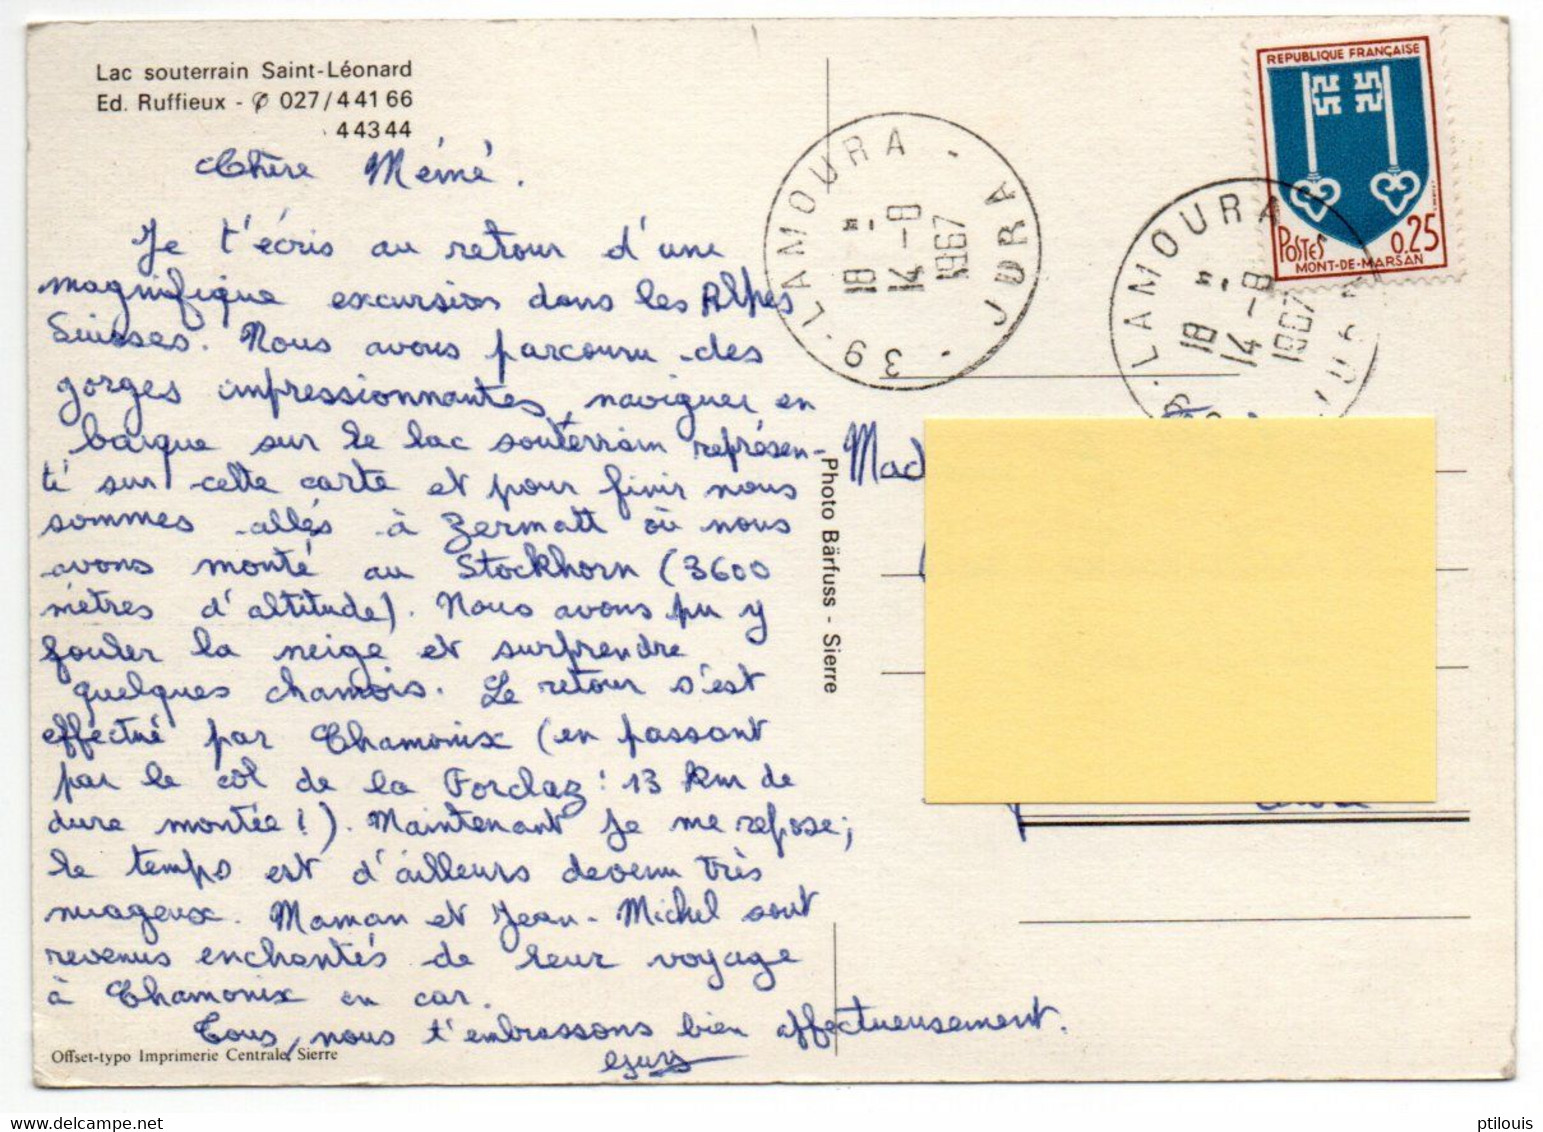 Lac souterrain Saint-Léonard
Ed. Ruffieux - ✆ 027/4 41 66
4 43 44
Chère Mémé.
Je t'écris au retour d'une
magnifique excursion dans les Alpes
Suisses. Nous avons parcouru des
gorges impressionnantes, naviguer en
barque sur le lac souterrain représen-
té sur cette carte et pour finir nous
sommes allés à Zermatt où nous
avons monté au Stockhorn (3600
mètres d'altitude). Nous avons pu y
fouler la neige et surprendre
quelques chamois. Le retour s'est
effectué par Chamonix (en passant
par le côl de la Forclaz : 13 km de
dure montée !). Maintenant je me repose;
le temps est d'ailleurs devenu très
nuageux. Maman et Jean-Michel sont
revenus enchantés de leur voyage
à Chamonix en car.
Tous, nous t'embrassons bien affectueusement.
Guy
Offset-typo Imprimerie Centrale, Sierre
Photo Bärfuss - Sierre
39 - LAMOURA - JURA
18 H -
14 - 8
1967
REPUBLIQUE FRANÇAISE
POSTES 0.25
MONT-DE-MARSAN
LAMOURA JURA
18 H -
14 - 8
1967
Mad
ptilouis